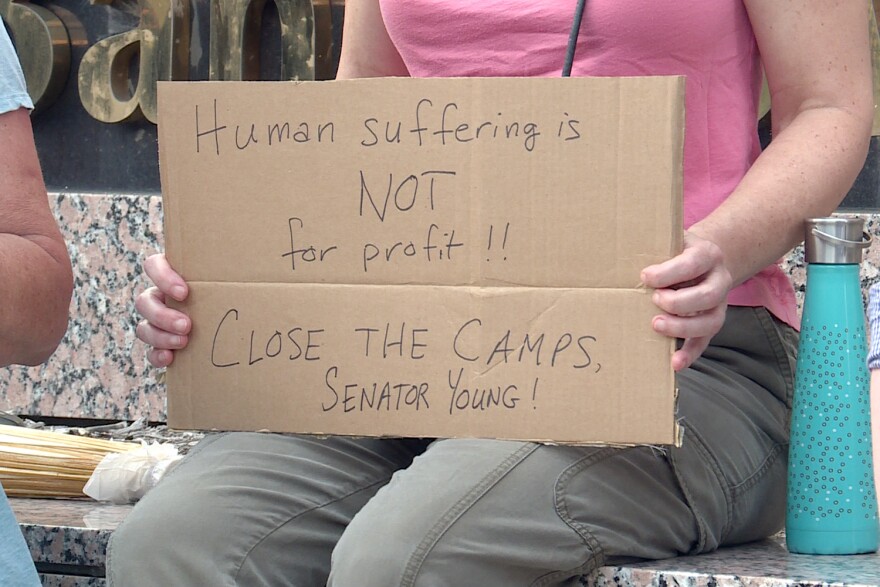 Human suffering is
NOT
for profit!!
CLOSE THE CAMPS,
SENATOR YOUNG!